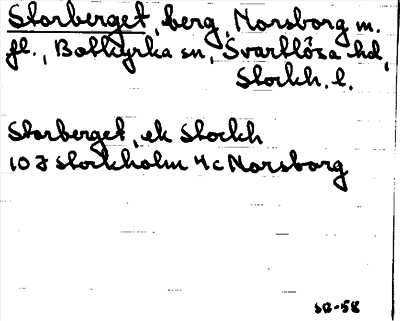 Storberget, berg, Norsborg m.
fl., Botkyrka sn, Svartlösa hd,
Stockh. l.
Storberget, ek Stockh
10 J Stockholm 4c Norsborg
SB-58